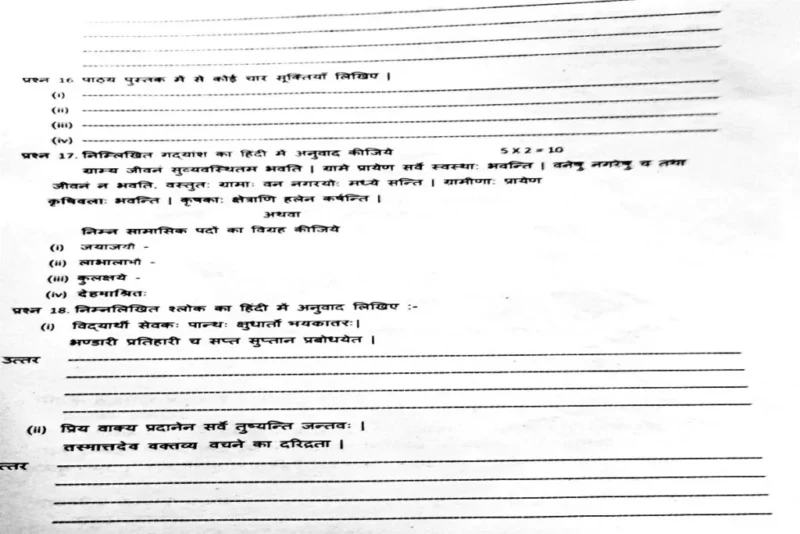 प्रश्न 16 पाठ्य पुस्तक में से कोई चार सूक्तियाँ लिखिए |
(i)
(ii)
(iii)
(iv)
प्रश्न 17. निम्लिखित गद्याश का हिंदी में अनुवाद कीजिये 5 X 2 = 10
ग्राम्य जीवनं सुव्यवस्थितम भवति | ग्रामे प्रायेण सर्वे स्वस्थाः भवन्ति | वनेषु नगरेषु च तथा
जीवनं न भवति. वस्तुतः ग्रामाः वन नगरयोः मध्ये सन्ति | ग्रामीणाः प्रायेण
कृषिवलाः भवन्ति | कृषकाः क्षेत्राणि हलेन कर्षन्ति |
अथवा
निम्न सामासिक पदों का विग्रह कीजिये
(i) जयाजयौ -
(ii) लाभालाभौ -
(iii) कुलक्षये -
(iv) देहमाश्रितः
प्रश्न 18. निम्नलिखित श्लोक का हिंदी में अनुवाद लिखिए :-
(i) विद्यार्थी सेवकः पान्थः क्षुधार्तो भयकातरः|
भण्डारी प्रतिहारी च सप्त सुप्तान प्रबोधयेत |
उत्तर
(ii) प्रिय वाक्य प्रदानेन सर्वे तुष्यन्ति जन्तवः |
तस्मात्तदेव वक्तव्य वचने का दरिद्रता |
त्तर